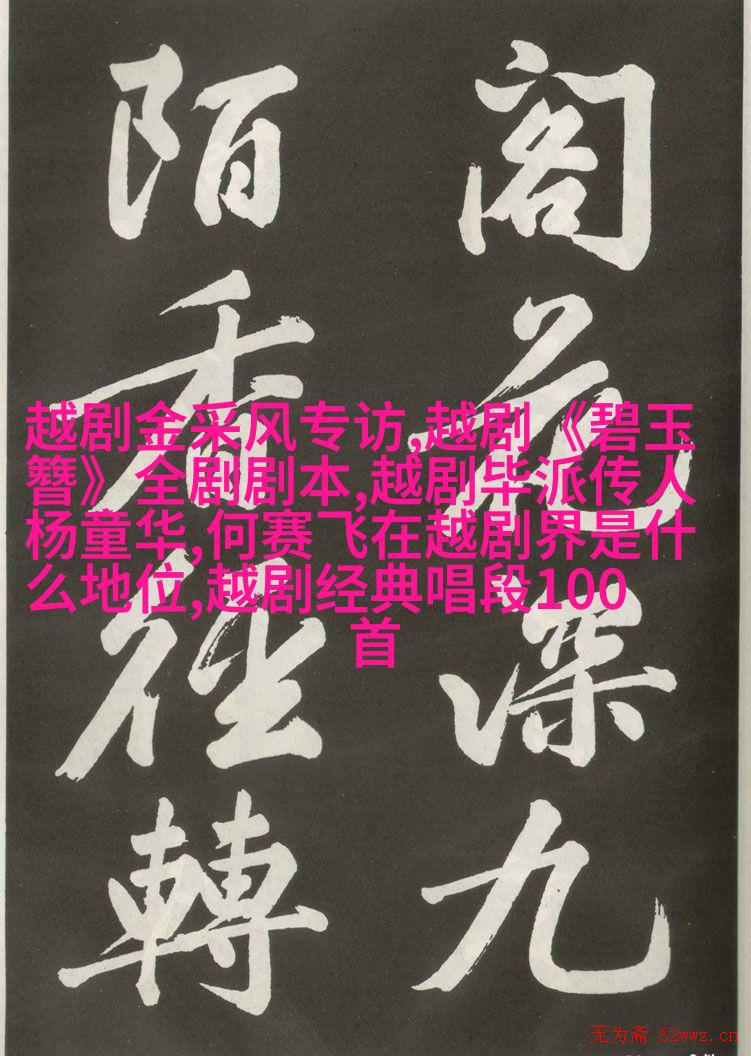 阁花深九
陌香径轉
越剧金采风专访,越剧《碧玉
簪》全剧剧本,越剧毕派传人
杨童华,何赛飞在越剧界是什
么地位,越剧经典唱段100
首
无为斋 52wwz.cn